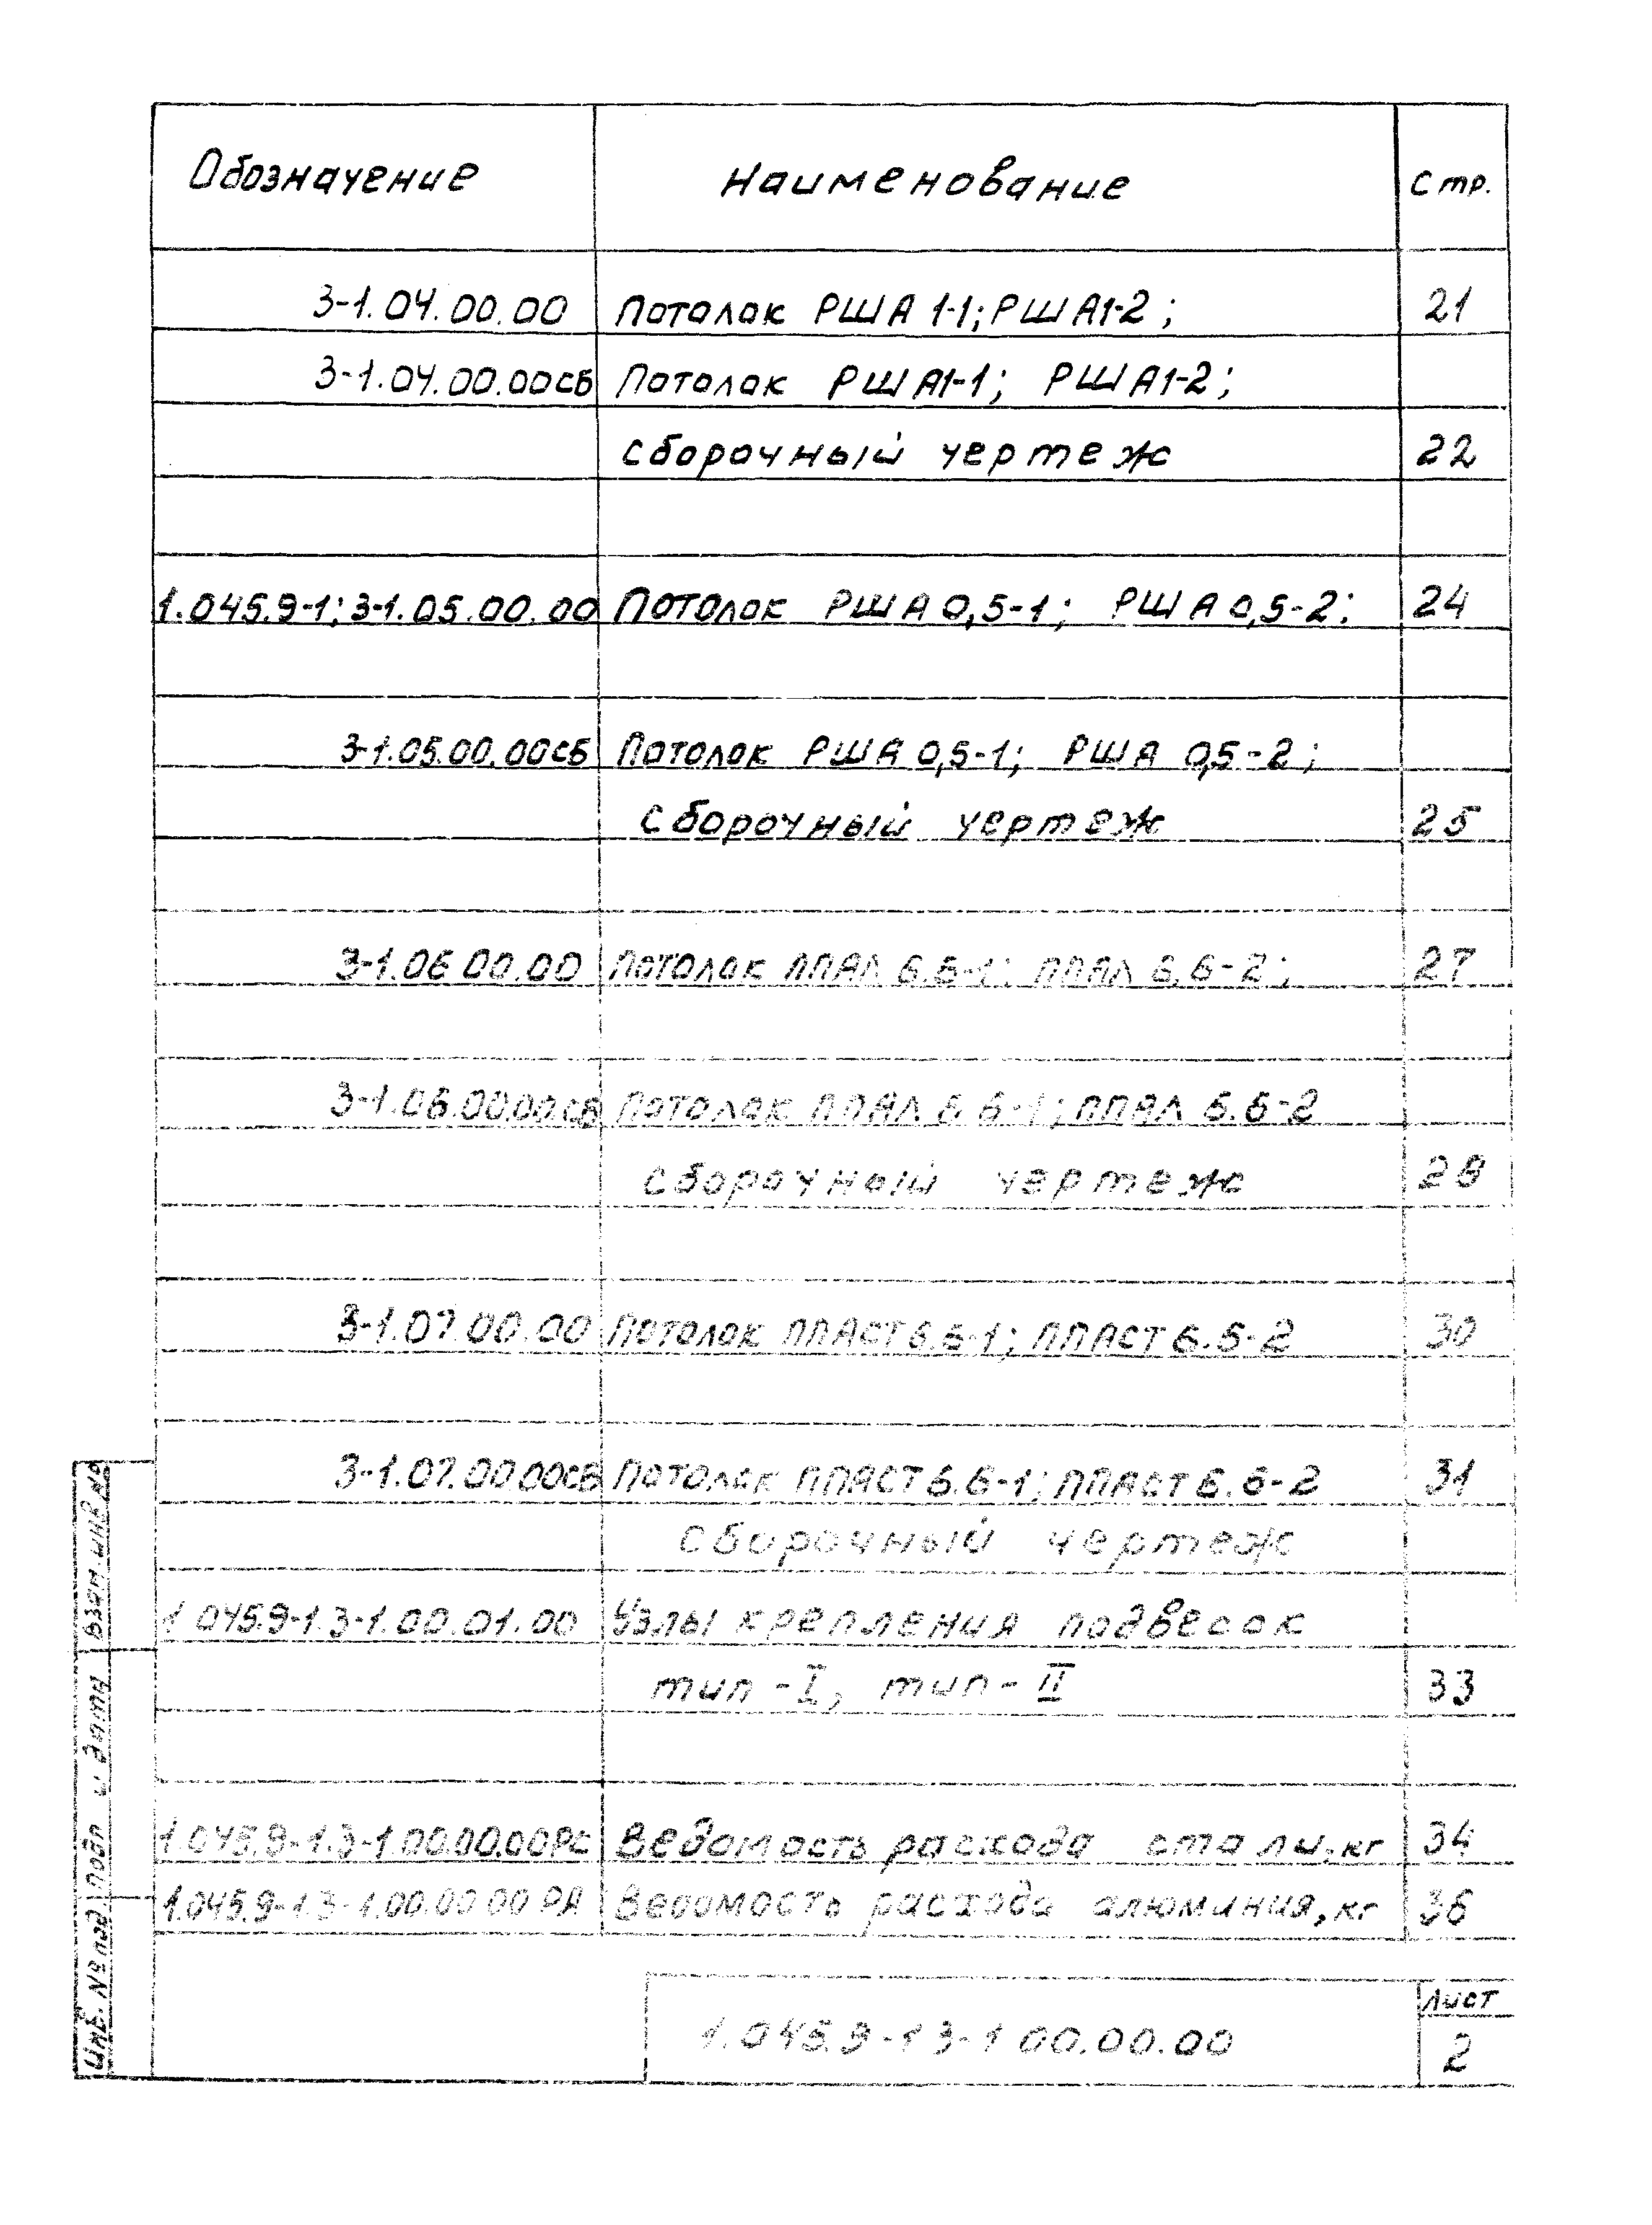 Обозначение Наименование Стр.
3-1.04.00.00 Потолок РША 1-1; РША1-2; 21
3-1.04.00.00СБ Потолок РША1-1; РША1-2;
сборочный чертеж 22
1.045.9-1; 3-1.05.00.00 Потолок РША 0,5-1; РША 0,5-2; 24
3-1.05.00.00СБ Потолок РША 0,5-1; РША 0,5-2;
сборочный чертеж 25
3-1.06 00.00 Потолок ППАЛ 6.6-1; ППАЛ 6.6-2; 27
3-1.06.00.00.СБ Потолок ППАЛ 6 6-1; ППАЛ 6.6-2
сборочный чертеж 28
3-1.07.00.00 Потолок ППАСТ 6.6-1; ППАСТ 6.6-2 30
3-1.07.00.00СБ Потолок ППАСТ 6.6-1; ППАСТ 6.6-2 31
сборочный чертеж
1 045.9-1.3-1.00.01.00 Узлы крепления подвесок
тип-I, тип-II 33
1.045.9-1.3-1.00.00.00РС Ведомость расхода стали, кг 34
1.045.9-1.3-1.00.00 00 РА Ведомость расхода алюминия, кг 36
1.045.9-1 3-1 00.00.00
Лист
2
Инв. № подл подп и дата Взам. инв №